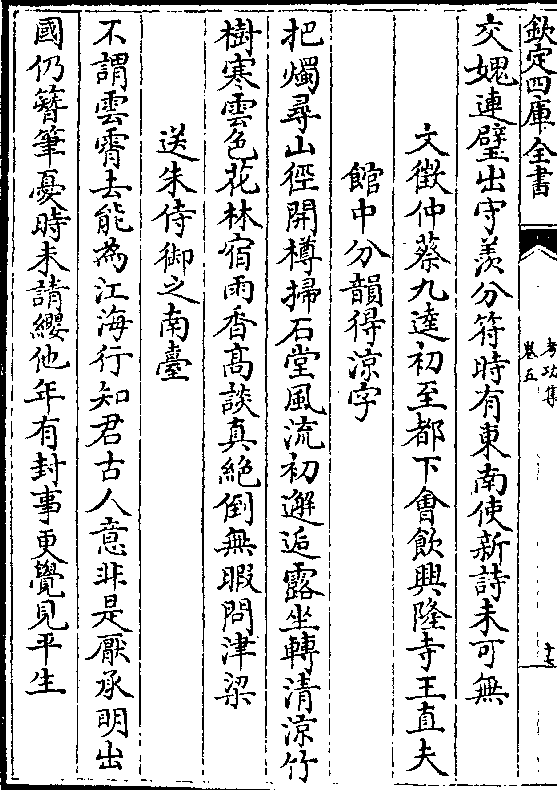 欽定四庫全書
考功集
卷五
交媿連璧出守羨分符時有東南使新詩未可無
文徴仲蔡九逵初至都下會飲興隆寺王直夫
館中分韻得涼字
把燭尋山徑開樽掃石堂風流初邂逅露坐轉清涼竹
樹寒雲色花林宿雨香髙談真絶倒無暇問津梁
送朱侍御之南臺
不謂雲霄去能為江海行知君古人意非是厭承明出
國仍簪筆憂時未請纓他年有封事更覺見平生